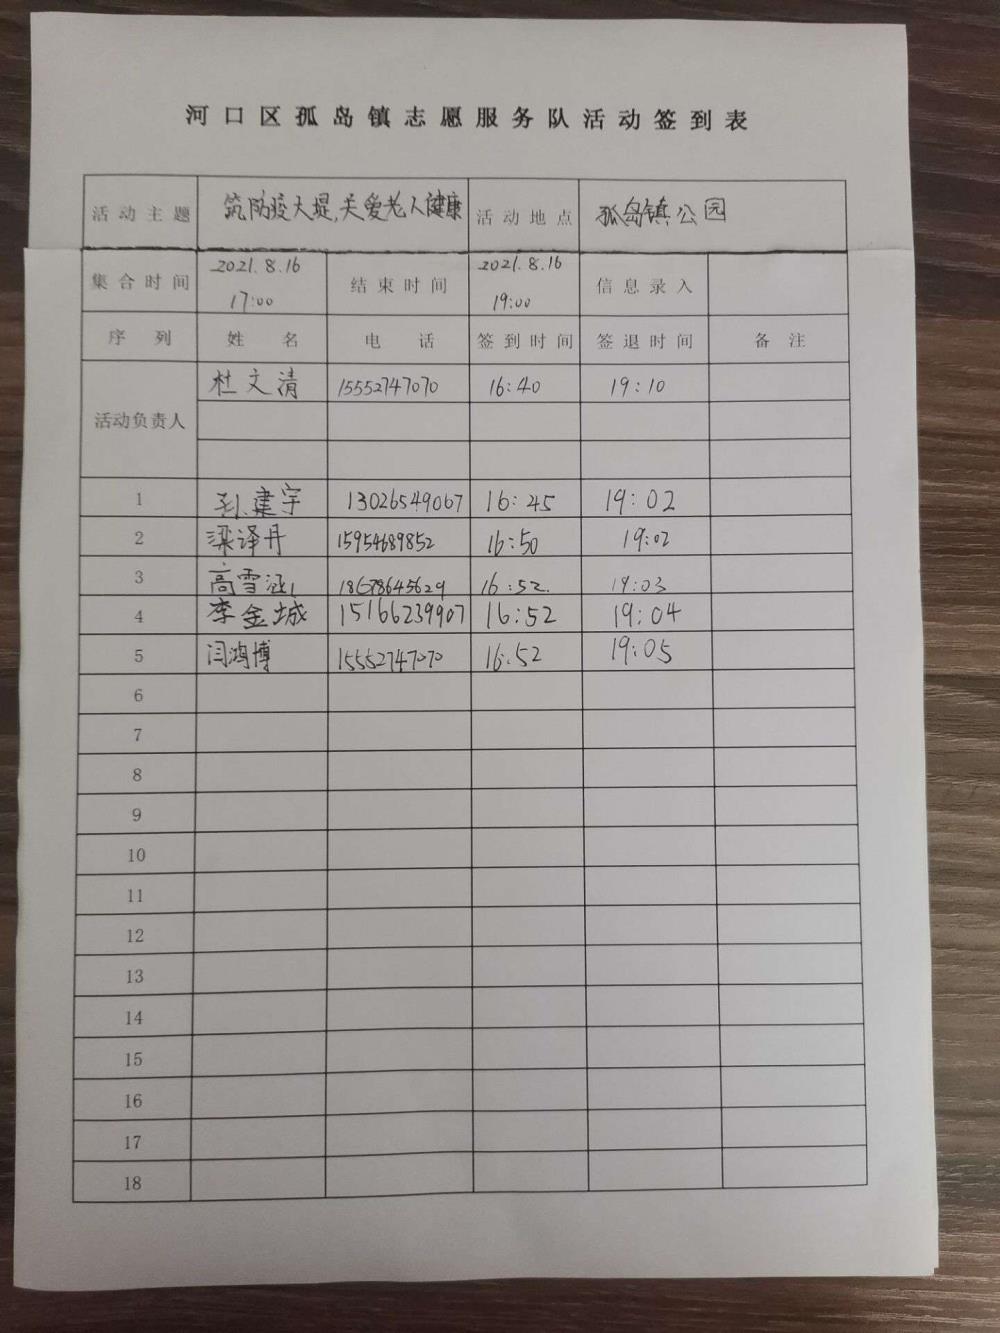 河口区孤岛镇志愿服务队活动签到表
活动主题 筑防疫大堤,关爱老人健康 活动地点 孤岛镇公园
集合时间 2021.8.16 17:00 结束时间 2021.8.16 19:00 信息录入
序列 姓名 电话 签到时间 签退时间 备注
活动负责人 杜文清 15552747070 16:40 19:10
1 孙建宇 13026549067 16:45 19:02
2 梁译丹 15954689852 16:50 19:02
3 高雪涵 18678645629 16:52 19:03
4 李金城 15166239907 16:52 19:04
5 闫鸿博 15552747070 16:52 19:05
6
7
8
9
10
11
12
13
14
15
16
17
18